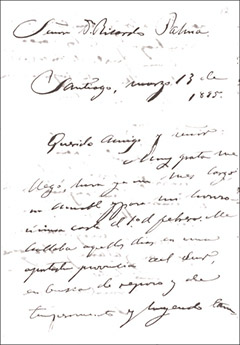 Señor D. Ricardo Palma.
Santiago, marzo 13 de
1885.
Querido amigo y señor
Muy grata me
llegó, hace ya un mes largo
su amable y para mi honrosa
carta del 1º de febrero. Me
hallaba aquellos dias en una
apartada provincia del Sur,
en busca de reposo y de
temperamento y huyendo